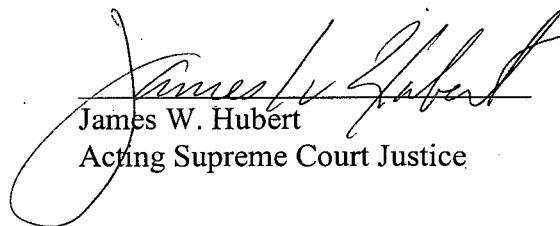 James W Hubert
James W. Hubert
Acting Supreme Court Justice